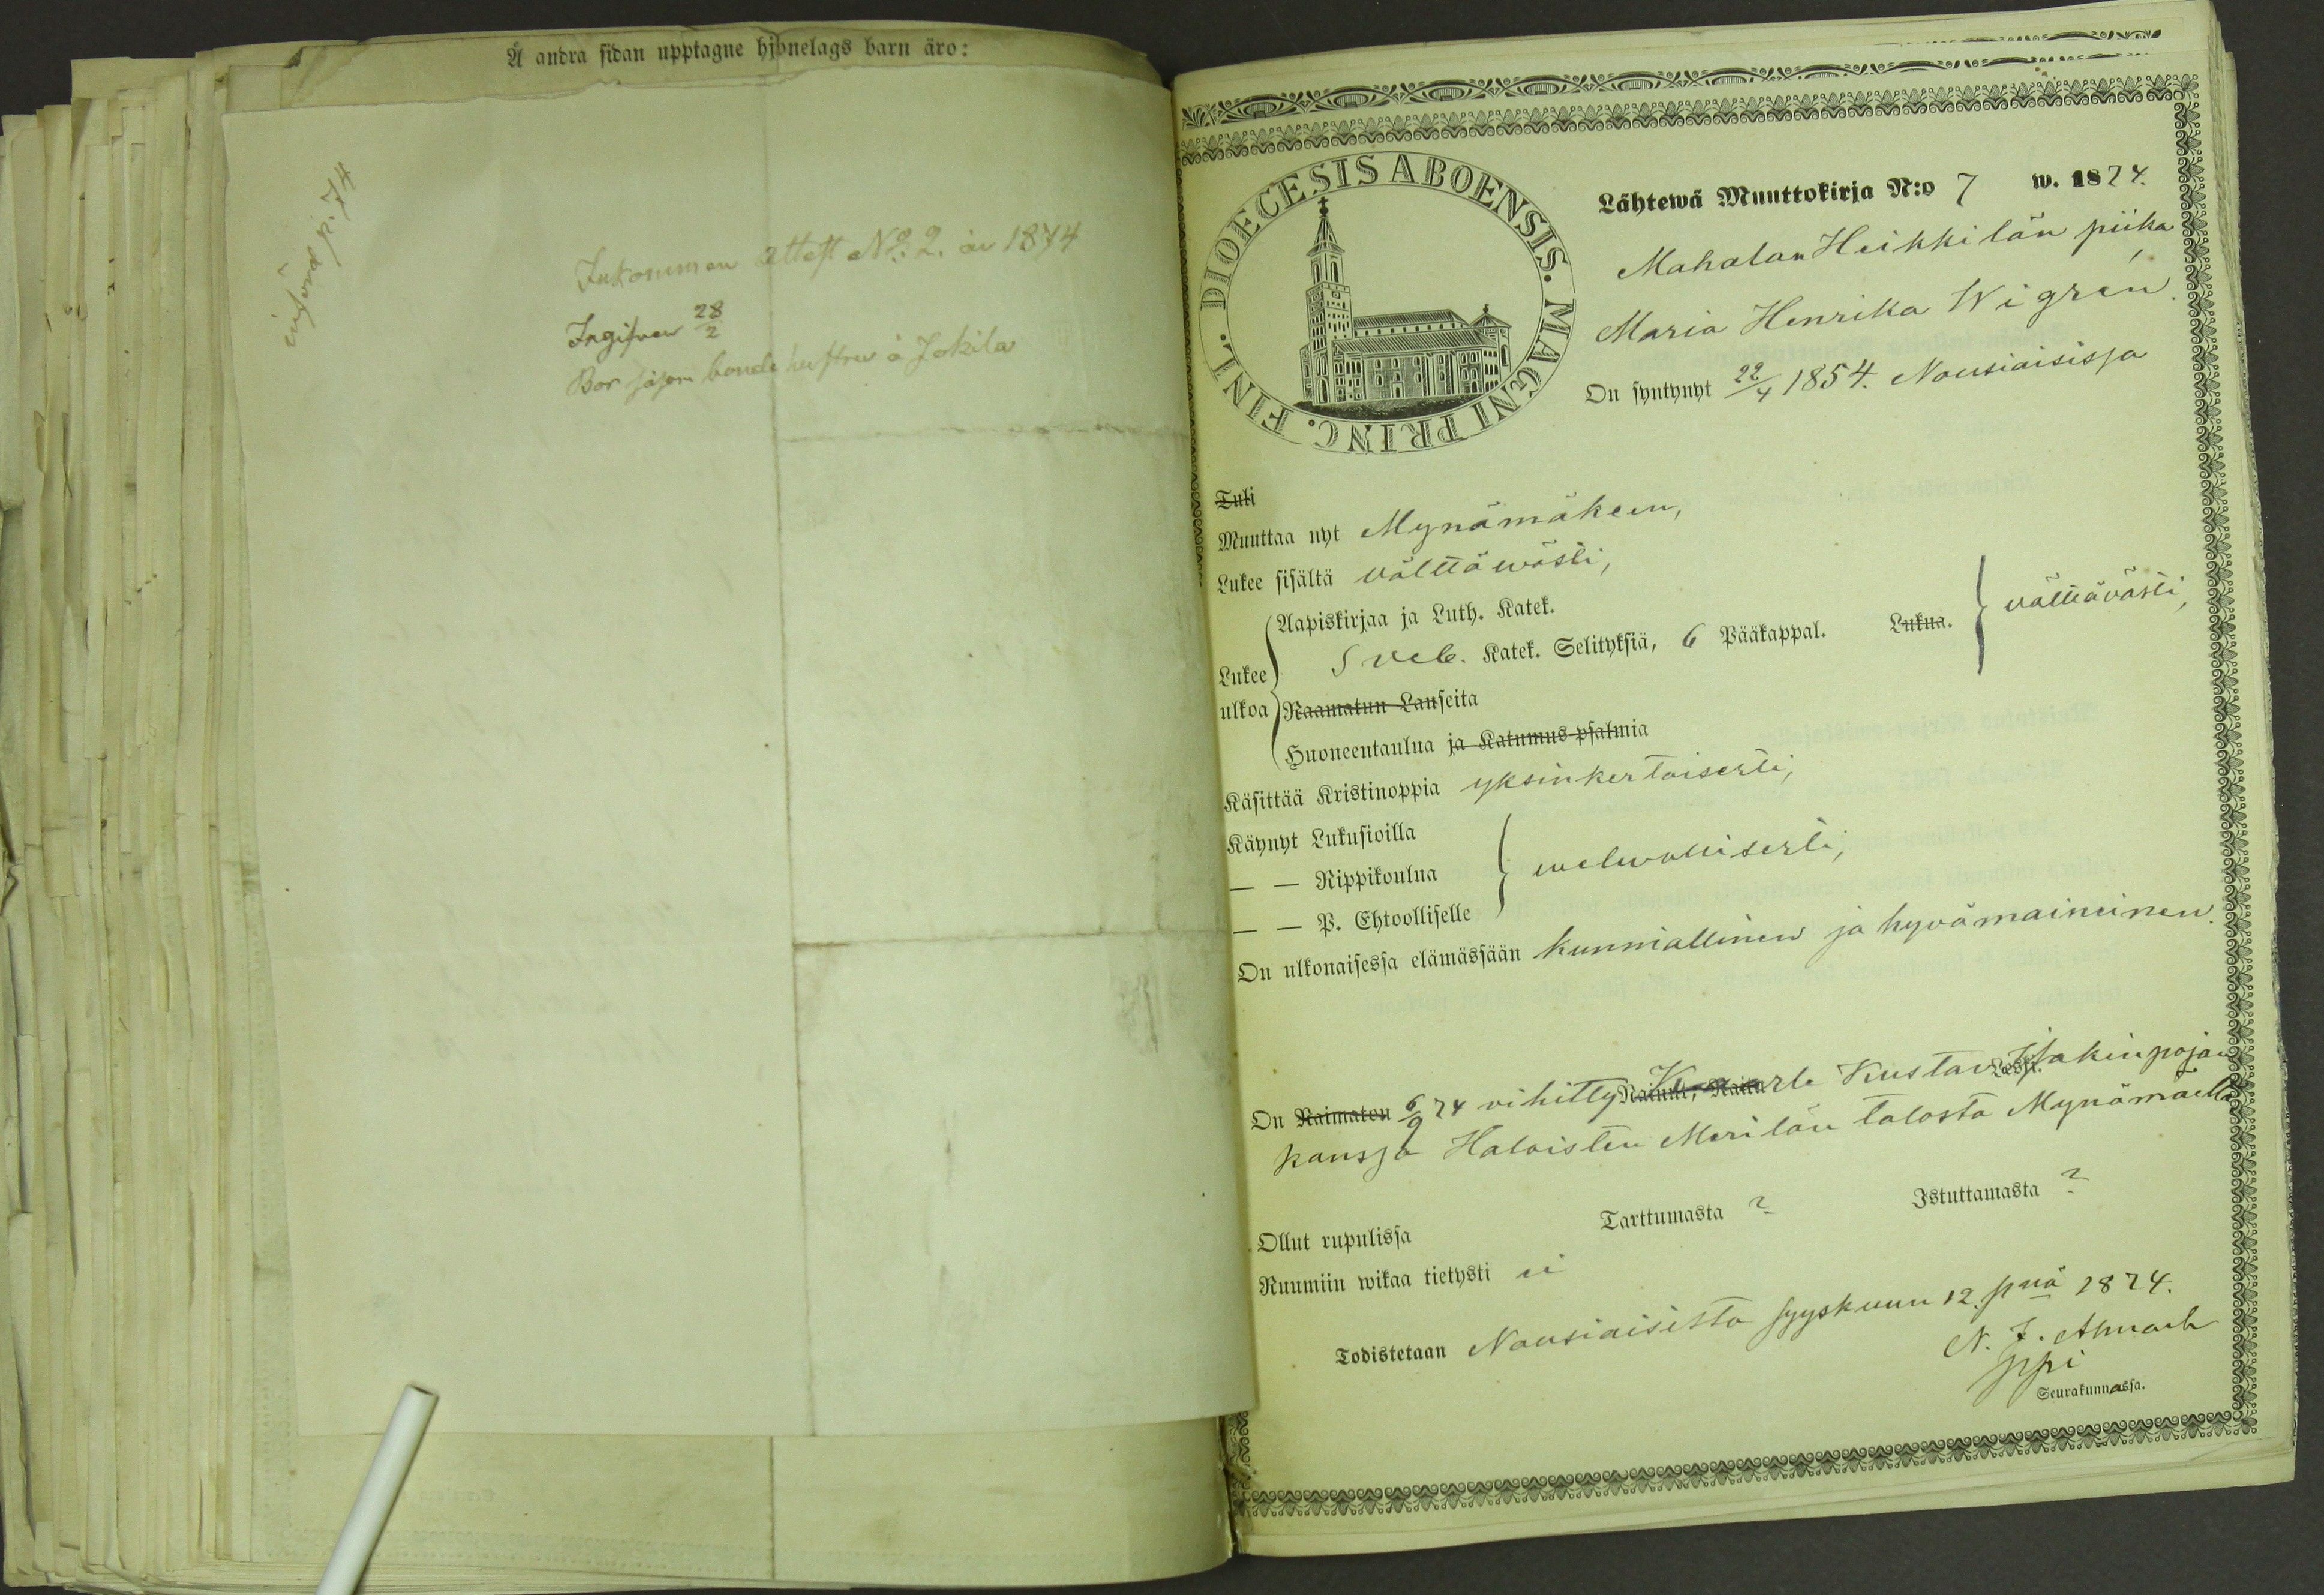 Å andra sidan upptagne hjonelags barn äro:
införd p. 74
Inkommen attest No. 2. år 1874
Ingifven 28/2
Bor såsom bonde hustru å Jokila
DIOECESIS ABOENSIS. MAGNI PRINC. FINL.
Lähtewä Muuttokirja N:o 7 w. 1874.
Mahalan Heikkilän piika
Maria Henrika Wigrén
On syntynyt 22/4 1854. Nousiaisissa
Tuli
Muuttaa nyt Mynämäkeen,
Lukee sisältä välttäwästi,
Aapiskirjaa ja Luth. Katek.
Lukee Sveb. Katek. Selityksiä, 6 Pääkappal. Lukua. välttävästi,
ulkoa Raamatun Lauseita
Huoneentaulua ja Katumus-psalmia
Käsittää Kristinoppia yksinkertaisesti,
Käynyt Lukusioilla
— — Rippikoulua welwollisesti,
— — P. Ehtoolliselle
On ulkonaisessa elämässään kunniallinen ja hyvämaineinen.
On Naimaton 6/9 74 vihitty Nainut, Kaarle Kustav Isakinpojan Leski.
kanssa Haloisten Merilän talosta Mynämäellä
Ollut rupulissa Tarttumasta ? Istuttamasta ?
Ruumiin wikaa tietysti ei
Todistetaan Nousiaisista syyskuun 12. pnä 1874.
N. J.
Seurakunnassa.